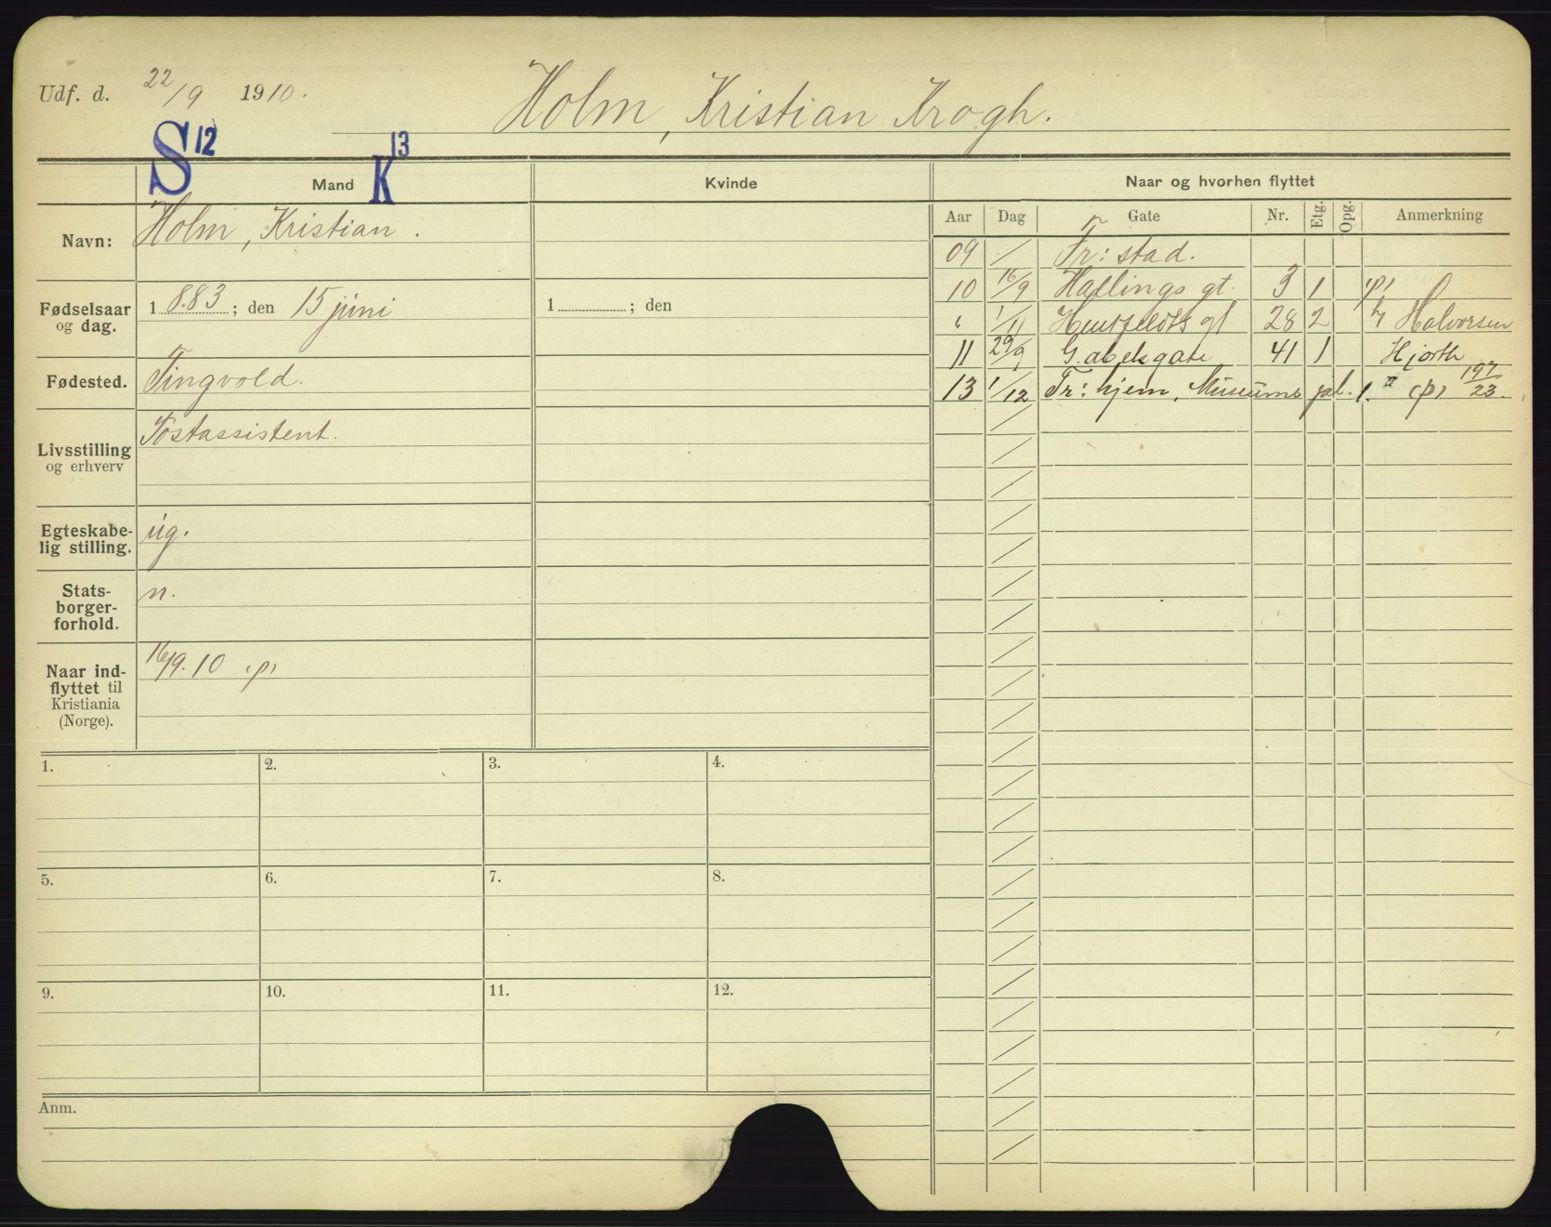 Udf. d. 22/9 1910.
Holm, Kristian Krogh.
S 12
K 13
Mand
Kvinde
Naar og hvorhen flyttet
Aar Dag Gate Nr. Etg. Opg. Anmerkning
Navn: Holm, Kristian.
Fødselsaar og dag. 1883; den 15 juni
1 ; den
Fødested. Tingvold.
Livsstilling og erhverv Postassistent.
Egteskabe-
lig stilling. ug.
Stats-
borger-
forhold. n.
Naar ind-
flyttet til
Kristiania
(Norge). 16/9. 10 (p)
09 / Fr: stad.
10 16/9 Hallings gt. 3 1 (p)
" 1/11 Huitfeldts gt 28 2 h/ Halvorsen
11 29/9 Gabelsgate 41 1 Hjorth
13 1/12 Fr: hjem, Museums pl. 1. II (p) 197/23.
1.
2.
3.
4.
5.
6.
7.
8.
9.
10.
11.
12.
Anm.